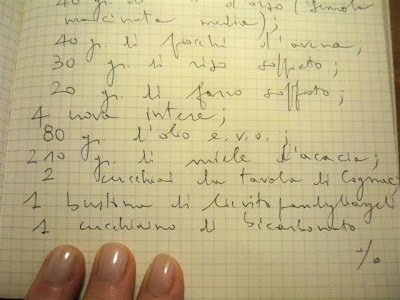 40 gr. di d'orzo (semola
macinata media);
40 gr. di fiocchi d'avena;
30 gr. di riso soffiato;
20 gr. di farro soffiato;
4 uova intere;
80 gr. d'olio e.v.o.;
210 gr. di miele d'acacia;
2 cucchiai da tavola di Cognac;
1 bustina di lievito pandegliangeli
1 cucchiaino di bicarbonato
%